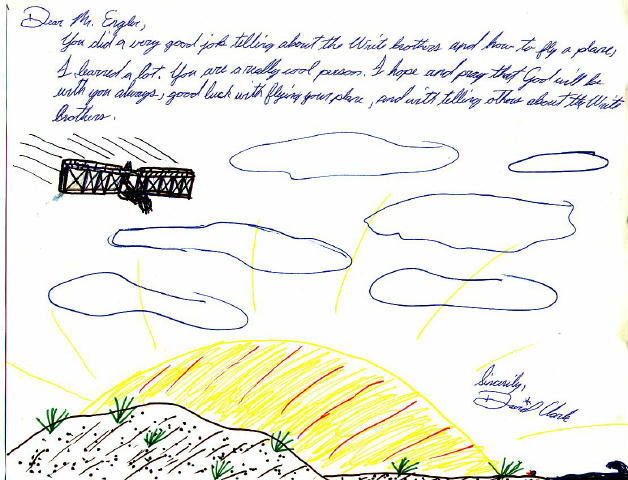 Dear Mr. Engler,
You did a very good job telling about the Write brothers and how to fly a plane,
I learned a lot. You are a really cool person. I hope and pray that God will be
with you always, good luck with flying your plane, and with telling others about the Write
brothers.
Sincerily,
David Clark